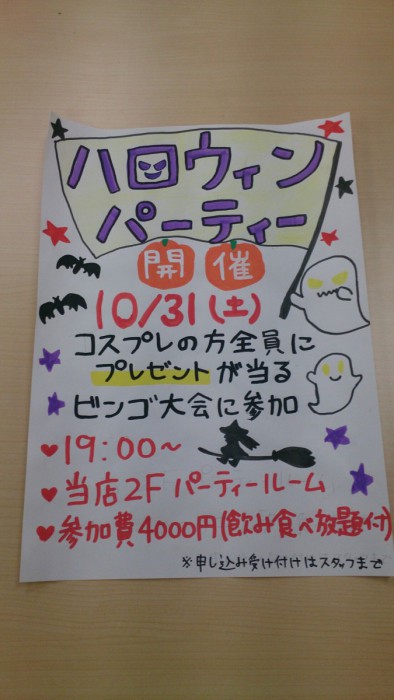 ハロウィン
パーティー
開催
10/31(土)
コスプレの方全員に
プレゼントが当る
ビンゴ大会に参加
♥19:00〜
♥当店2Fパーティールーム
♥参加費4000円(飲み食べ放題付)
※申し込み受け付けはスタッフまで